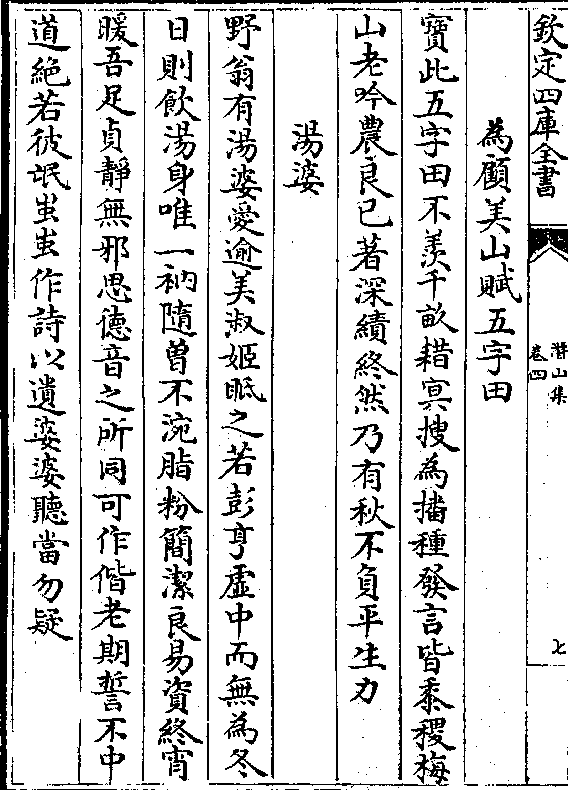 欽定四庫全書
潛山集
卷四
七
為顧美山賦五字田
寶此五字田不羨千畝耤冥搜為播種發言皆黍稷梅
山老吟農良已著深績終然乃有秋不負平生力
湯婆
野翁有湯婆愛逾美淑姬眡之若彭亨虛中而無為冬
日則飲湯身唯一衲隨曽不涴脂粉簡潔良易資終宵
暖吾足貞靜無邪思德音之所同可作偕老期誓不中
道絶若彼氓蚩蚩作詩以遺婆婆聽當勿疑